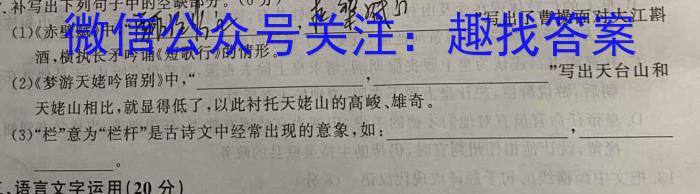 补写出下列句子中的空缺部分。(6分)
(1)《赤壁赋》中 写出了曹操面对大江斟
酒,横执长矛吟诵《短歌行》的情形。
微信公众号关注:趣找答案
(2)《梦游天姥吟留别》中,“ , ”写出天台山和
天姥山相比,就显得低了,以此衬托天姥山的高峻、雄奇。
(3)“栏”意为“栏杆”是古诗文中经常出现的意象,如: ,
。
、语言文字运用(20分)